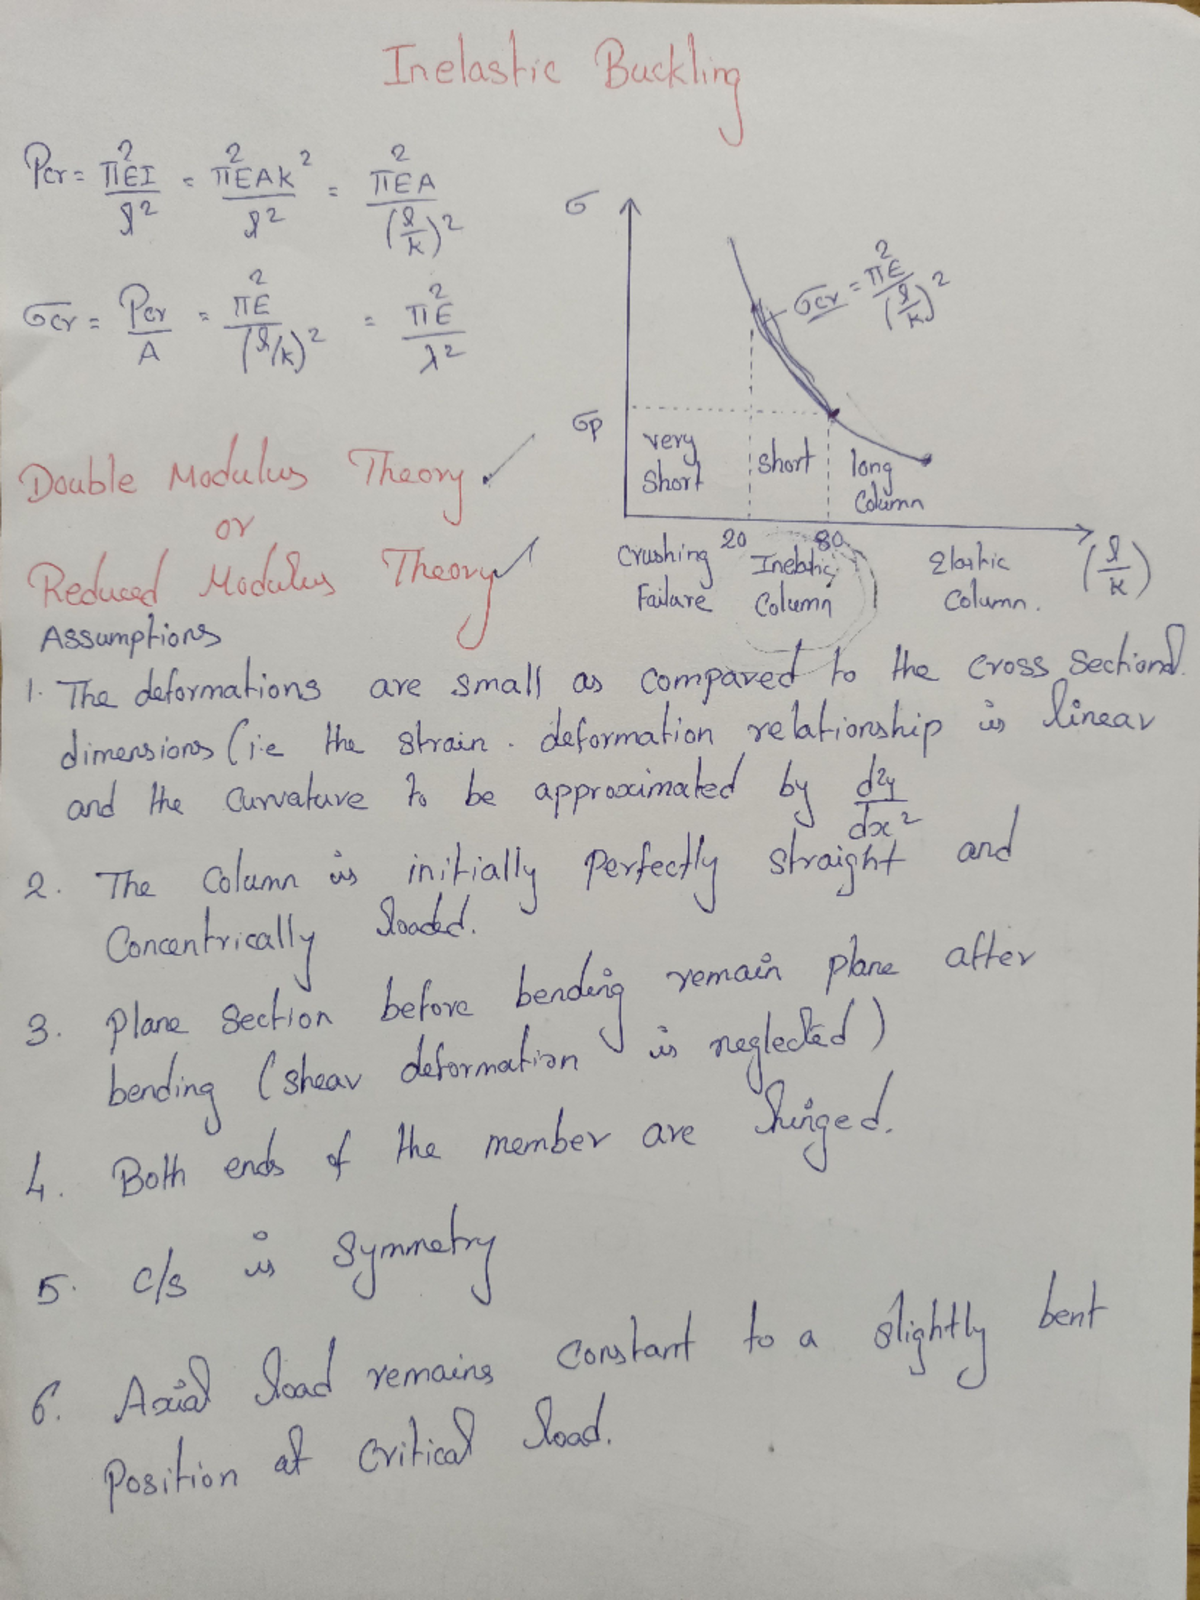 Inelastic Buckling
Pcr = π²EI/l² = π²EAk²/l² = π²EA/(l/k)²
σcr = Pcr/A = π²E/(l/k)² = π²E/λ²
σ
σcr = π²E/(l/k)²
σp
very short
short
long Column
20
80
(l/k)
Crushing Failure
Inelastic Column
Elastic Column.
Double Modulus Theory
or
Reduced Modulus Theory
Assumptions
1. The deformations are small as compared to the cross sectional
dimensions (i.e the strain - deformation relationship is linear
and the curvature to be approximated by d²y/dx²
2. The column is initially perfectly straight and
Concentrically loaded.
3. Plane section before bending remain plane after
bending (shear deformation is neglected)
4. Both ends of the member are hinged.
5. c/s is symmetry
6. Axial load remains constant to a slightly bent
Position at critical load.